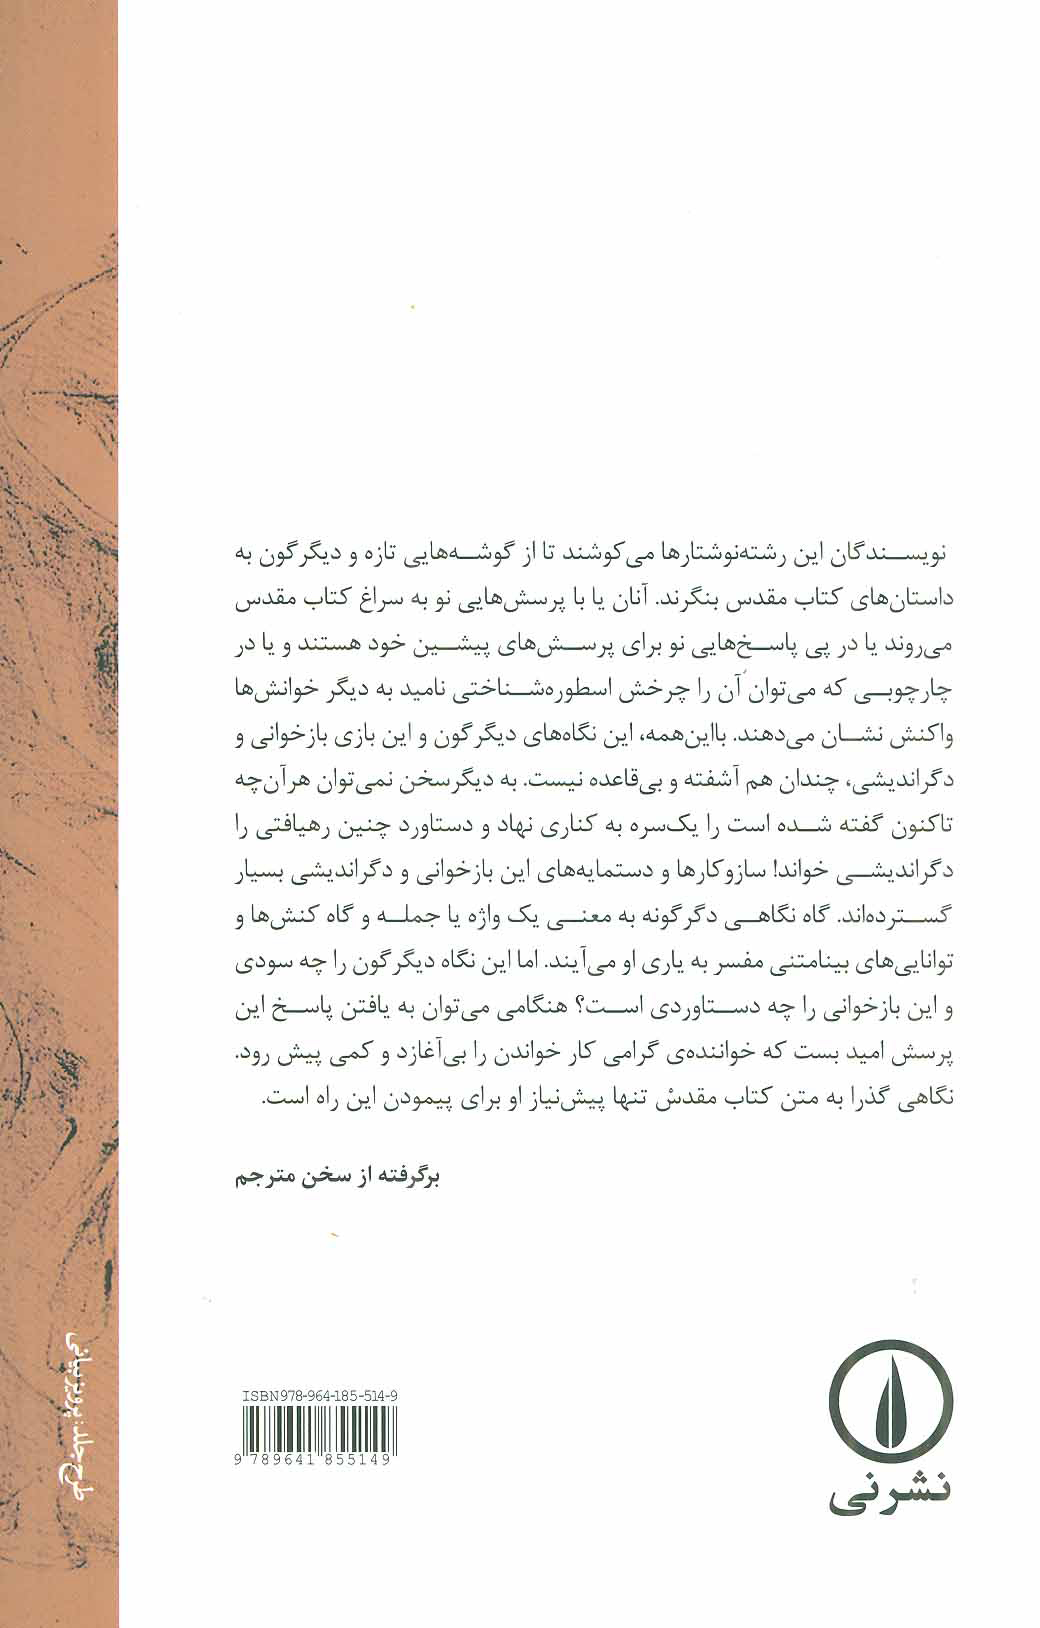 نویسندگان این رشته‌نوشتارها می‌کوشند تا از گوشه‌هایی تازه و دیگرگون به
داستان‌های کتاب مقدس بنگرند. آنان یا با پرسش‌هایی نو به سراغ کتاب مقدس
می‌روند یا در پی پاسخ‌هایی نو برای پرسش‌های پیشین خود هستند و یا در
چارچوبی که می‌توان آن را چرخش اسطوره‌شناختی نامید به دیگر خوانش‌ها
واکنش نشان می‌دهند. بااین‌همه، این نگاه‌های دیگرگون و این بازی بازخوانی و
دگراندیشی، چندان هم آشفته و بی‌قاعده نیست. به دیگرسخن نمی‌توان هرآن‌چه
تاکنون گفته شده است را یک‌سره به کناری نهاد و دستاورد چنین رهیافتی را
دگراندیشی خواند! سازوکارها و دستمایه‌های این بازخوانی و دگراندیشی بسیار
گسترده‌اند. گاه نگاهی دگرگونه به معنی یک واژه یا جمله و گاه کنش‌ها و
توانایی‌های بینامتنی مفسر به یاری او می‌آیند. اما این نگاه دیگرگون را چه سودی
و این بازخوانی را چه دستاوردی است؟ هنگامی می‌توان به یافتن پاسخ این
پرسش امید بست که خواننده‌ی گرامی کار خواندن را بی‌آغازد و کمی پیش رود.
نگاهی گذرا به متن کتاب مقدسْ تنها پیش‌نیاز او برای پیمودن این راه است.
برگرفته از سخن مترجم
طرح جلد: پرویز بیانی
ISBN978-964-185-514-9
9 789641 855149
نشرنی